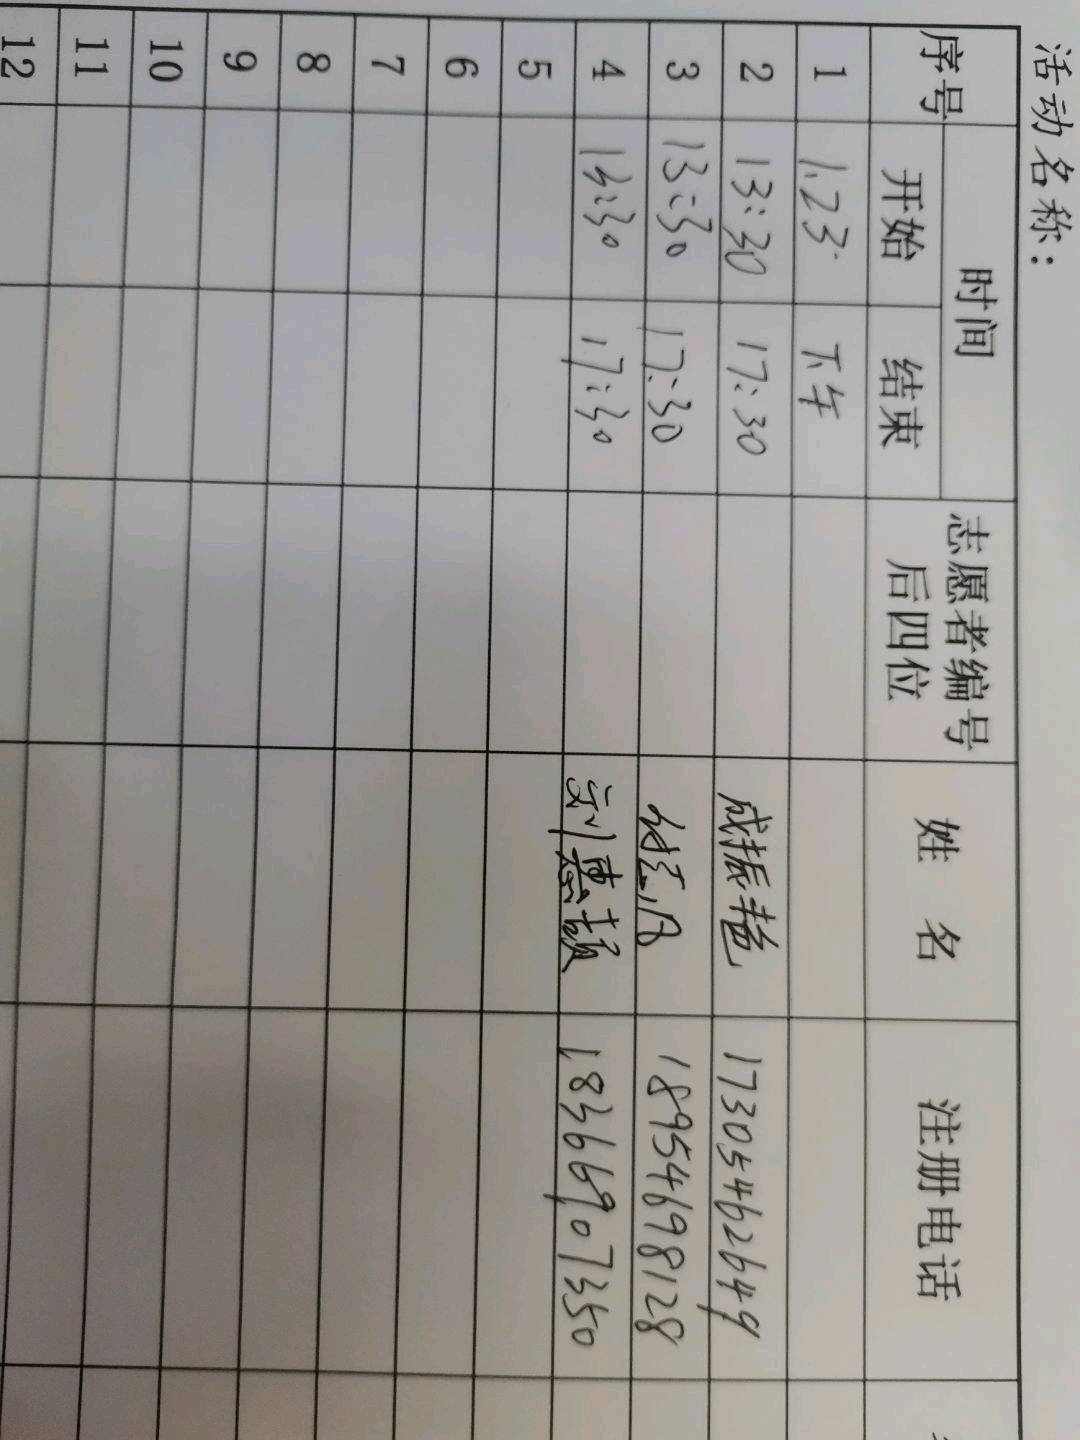 活动名称：
序号 时间 志愿者编号后四位 姓 名 注册电话
开始 结束
1 1.23. 下午
2 13:30 17:30 成振艳 17305462649
3 13:30 17:30 18954698128
4 13:30 17:30 刘惠颖 18366907350
5
6
7
8
9
10
11
12